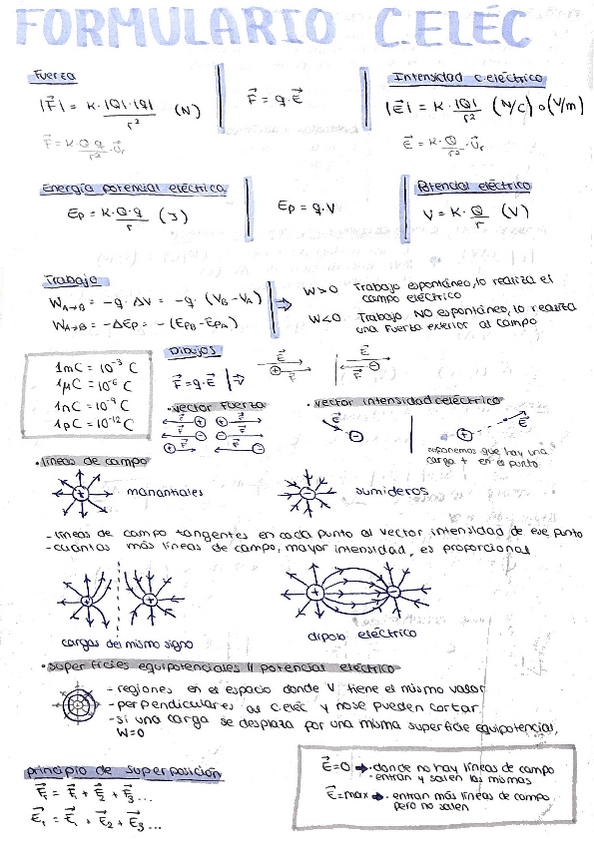 FORMULARIO C.ELÉC
Fuerza
|F⃗| = K · |Q|·|q| / r² (N)
F⃗ = K · Q q / r² · u⃗r
F⃗ = q · E⃗
Intensidad c.eléctrico
|E⃗| = K · |Q| / r² (N/C) o (V/m)
E⃗ = K · Q / r² · u⃗r
Energía potencial eléctrica
Ep = K · Q · q / r (J)
Ep = q · V
Potencial eléctrico
V = K · Q / r (V)
Trabajo
WA→B = -q · ΔV = -q · (VB - VA)
WA→B = -ΔEp = - (EPB - EPA)
W>0 Trabajo espontáneo, lo realiza el
campo eléctrico
W<0 Trabajo NO espontáneo, lo realiza
una fuerza exterior al campo
1mC = 10⁻³ C
1μC = 10⁻⁶ C
1nC = 10⁻⁹ C
1pC = 10⁻¹² C
Dibujos
F⃗ = q · E⃗
E⃗
+ F⃗
E⃗
F⃗ -
· vector fuerza
F⃗ + + F⃗
F⃗ - - F⃗
+ F⃗ F⃗ -
· vector intensidad c.eléctrico
E⃗ -
+ E⃗
suponemos que hay una
carga + en el punto
· líneas de campo
+ manantiales
- sumideros
- líneas de campo tangentes en cada punto al vector intensidad de ese punto
- cuantas más líneas de campo, mayor intensidad, es proporcional
+ +
cargas del mismo signo
+ -
dipolo eléctrico
· superficies equipotenciales || potencial eléctrico
- regiones en el espacio donde V tiene el mismo valor
- perpendiculares al c.eléc y no se pueden cortar.
- si una carga se desplaza por una misma superficie equipotencial,
W=0
principio de superposición
= F⃗1 + F⃗2 + F⃗3 ...
= E⃗1 + E⃗2 + E⃗3 ...
E⃗=0 → · donde no hay líneas de campo
· entran y salen las mismas
E⃗=max → · entran más líneas de campo
pero no salen